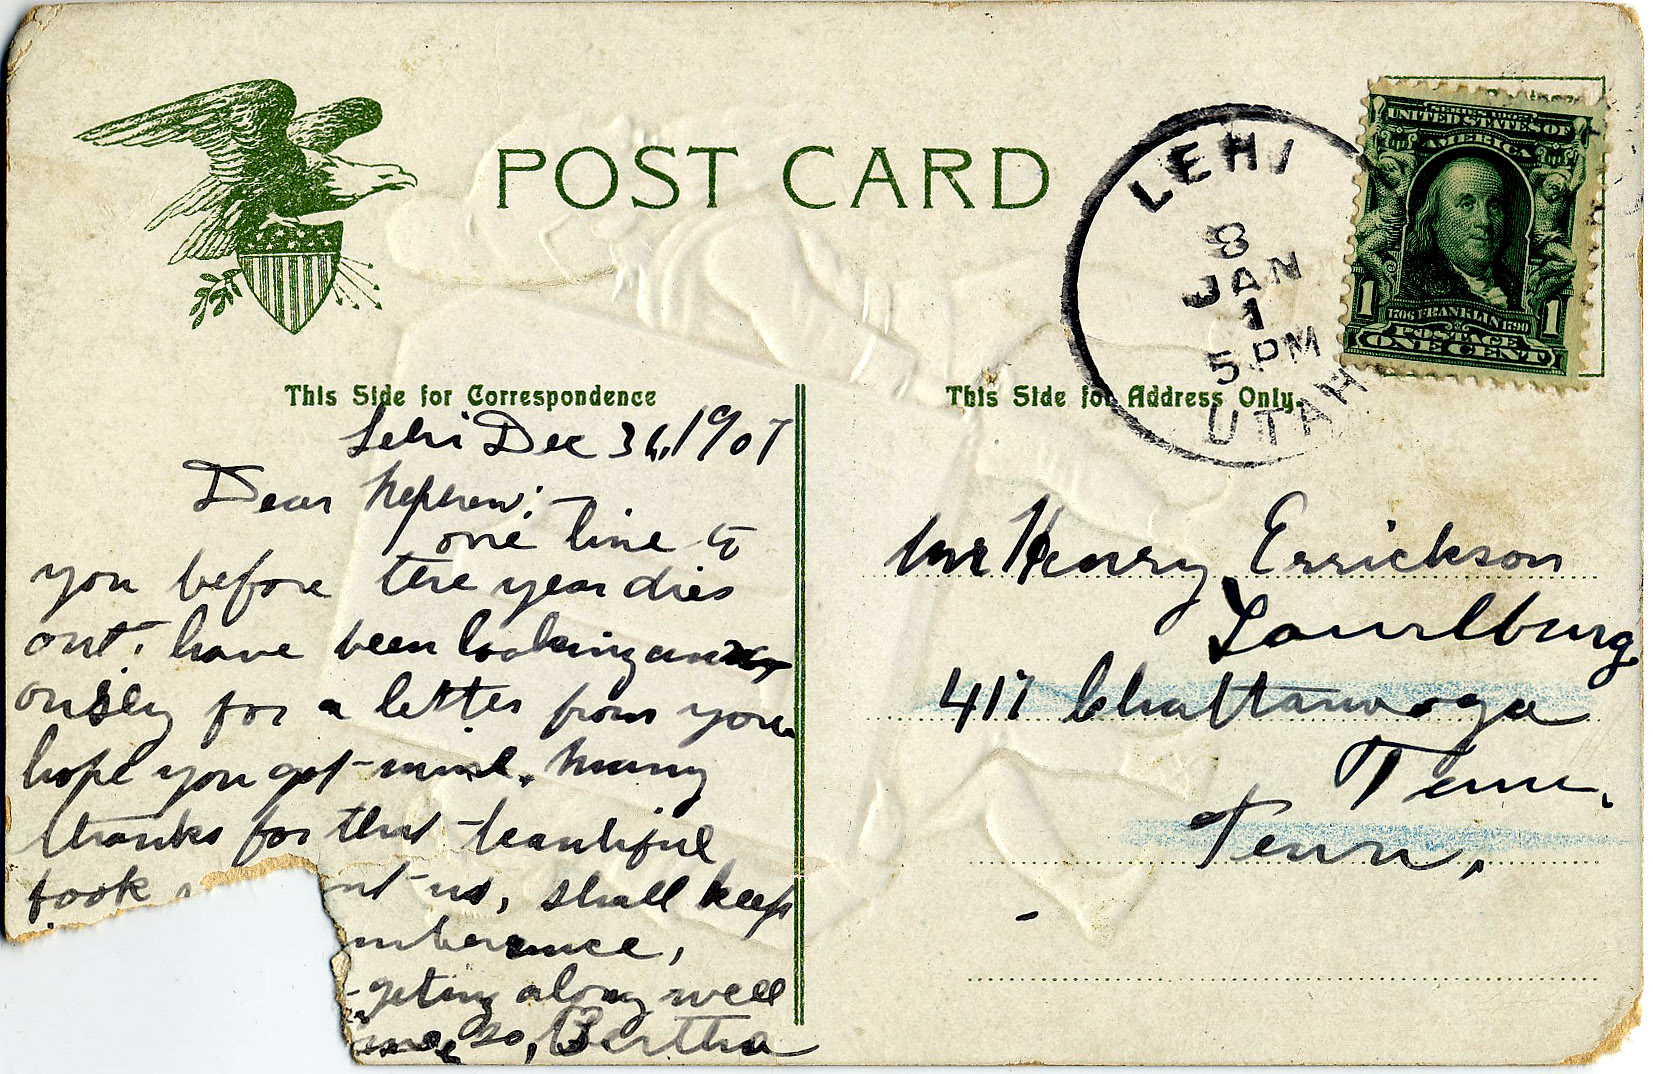 POST CARD
LEHI
8
JAN
1
5 PM
UTAH
UNITED STATES OF
AMERICA
1 1706 FRANKLIN 1790 1
POSTAGE
ONE CENT
This Side for Correspondence
Lehi Dec 31, 1907
Dear Nephew:—
one line to
you before the year dies
out. have been looking anx
ously for a letter from you
hope you got mine. many
thanks for that beautiful
book nt us, shall keep
mberance,
geting along well
so, Bertha
This Side for Address Only.
Mr Henry Errickson
417 Chattanooga
Tenn.
Tenn.